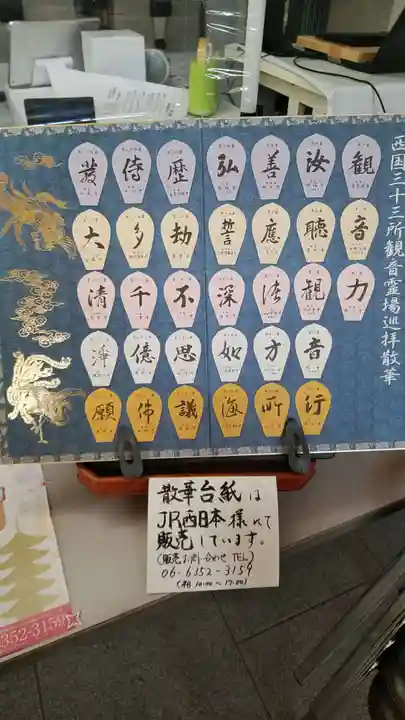 西国三十三所観音霊場巡拝散華
観音力
汝聴観音行
善應諸方所
弘誓深如海
歴劫不思議
侍多千億佛
發大清淨願
散華台紙は
JR西日本様にて
販売しています。
(販売お問い合わせ TEL)
06-6352-3159
10:00～17:00)
352-3159